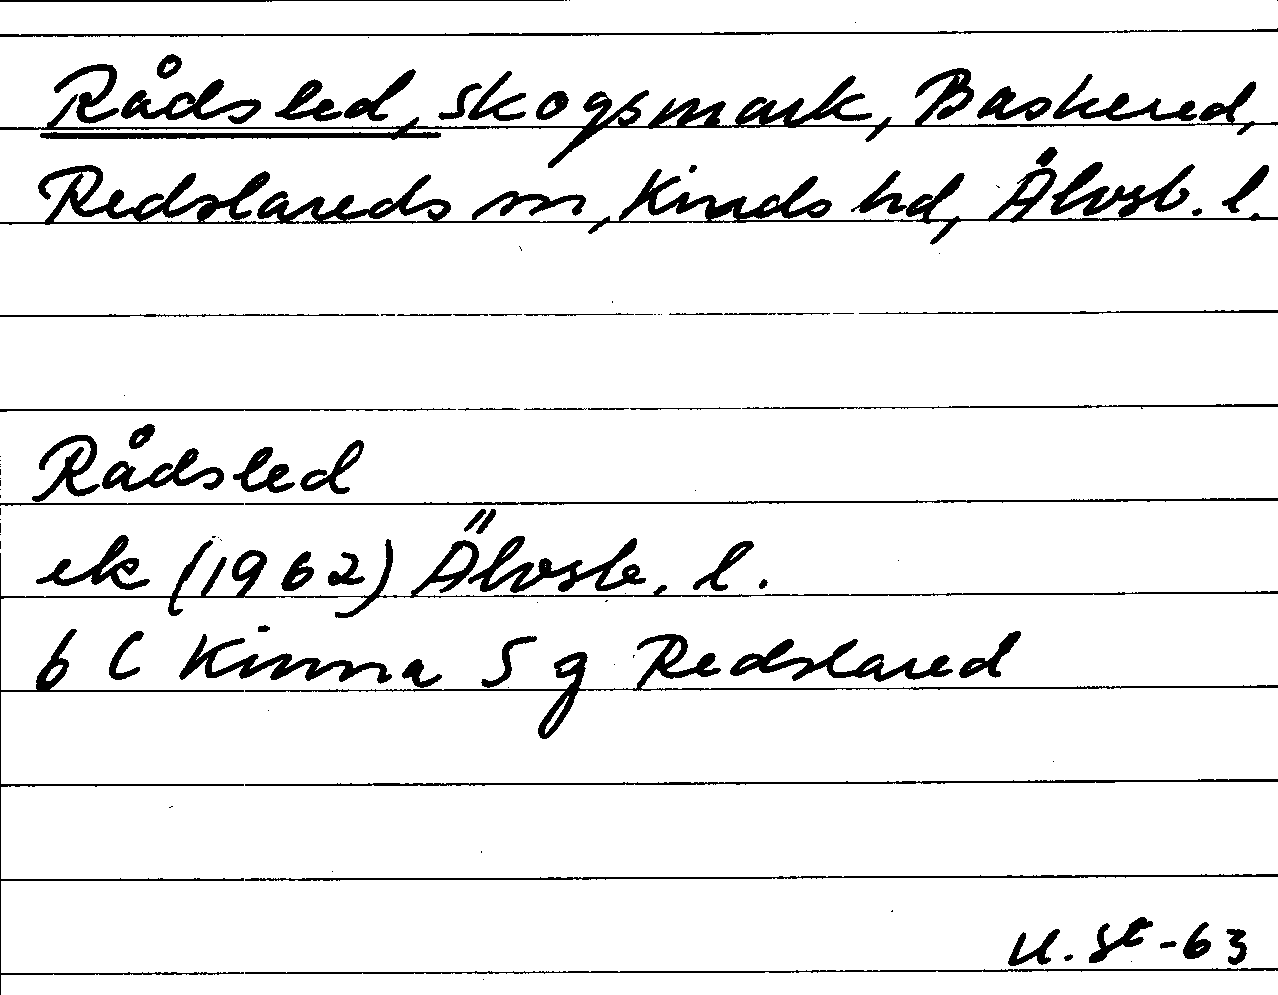 Rådsled, skogsmark, Baskered,
Redslareds sn, Kinds hd, Älvsb. l.
Rådsled
ek (1962) Älvsb. l.
6 C Kinna 5 g Redslared
U. St -63